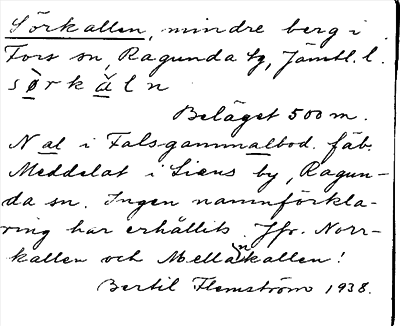 Sörkallen, mindre berg i
Fors sn, Ragunda tg, Jämtl. l.
sø̀rkäln
Beläget 500 m.
Nal i Falsgammalbod. fäb.
Meddelat i Liens by, Ragun-
da sn. Ingen namnförkla-
ring har erhållits. Jfr. Norr-
kallen och Mellankallen!
Bertil Flemström 1938.